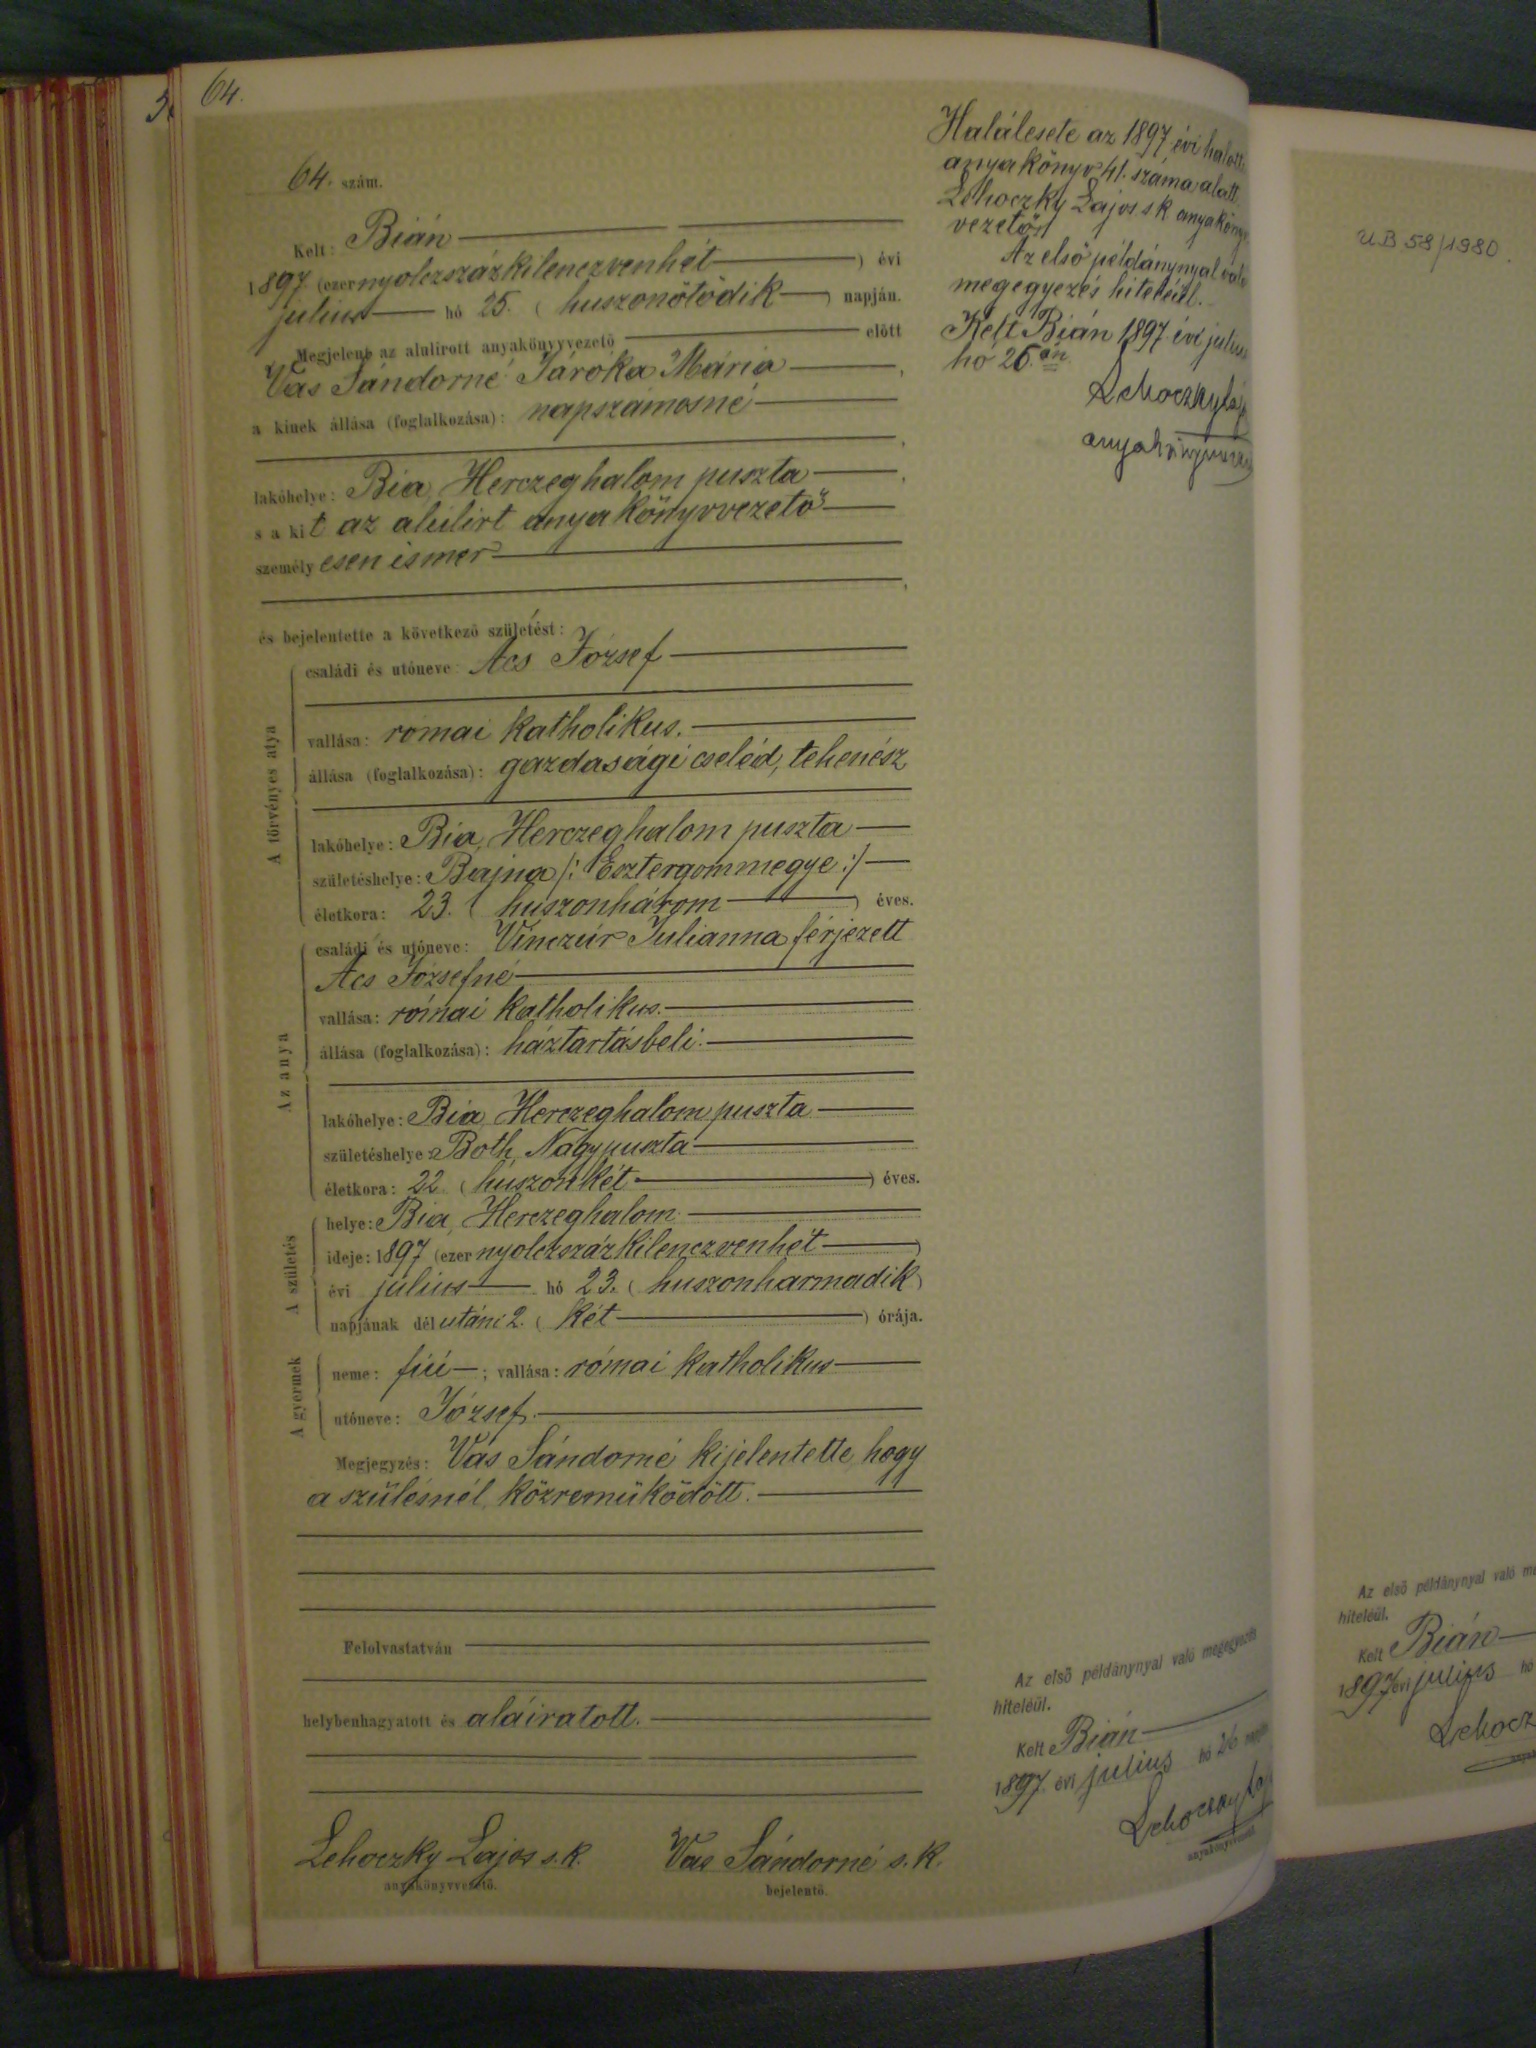 64.
64. szám.
Kelt: Bián
1897 (ezernyolczszázkilenczvenhét) évi
julius hó 25. (huszonötödik) napján.
Megjelent az alulirott anyakönyvvezető előtt
Vas Sándorné Járóka Mária,
a kinek állása (foglalkozása): napszámosné
lakóhelye: Bia, Herczeghalom puszta,
s a kit az alulirt anyakönyvvezető
személyesen ismer
és bejelentette a következő születést:
A törvényes atya
családi és utóneve: Ács József
vallása: római katholikus.
állása (foglalkozása): gazdasági cseléd, tehenész
lakóhelye: Bia, Herczeghalom puszta
születéshelye: Bajna /: Esztergommegye :/
életkora: 23. (huszonhárom) éves.
Az anya
családi és utóneve: Vinczúr Julianna férjezett
Ács Józsefné
vallása: római katholikus.
állása (foglalkozása): háztartásbeli.
lakóhelye: Bia, Herczeghalom puszta
születéshelye: Both, Nagypuszta
életkora: 22. (huszonkét) éves.
A születés
helye: Bia, Herczeghalom.
ideje: 1897 (ezernyolczszázkilenczvenhét)
évi julius hó 23. (huszonharmadik)
napjának délutáni 2. (két) órája.
A gyermek
neme: fiú; vallása: római katholikus
utóneve: József.
Megjegyzés: Vas Sándorné kijelentette, hogy
a szülésnél közremüködött.
Felolvastatván
helybenhagyatott és aláiratott.
Lehoczky Lajos s. k.
anyakönyvvezető.
Vas Sándorné s. k.
bejelentő.
Halálesete az 1897 évi halotti
anyakönyv 41. száma alatt.
Lehoczky Lajos s k anyakönyv
vezető
Az első példánynyal való
megegyezés hiteléül.
Kelt Bián 1897 évi julius
hó 26.án
Lehoczky Laj
anyakönyvvezető
Az első példánynyal való megegyezés
hiteléül.
Kelt Bián
1897 évi julius hó 26 napján
Lehoczky Laj
anyakönyvvezető.
UB 58/1980.
Az első példánynyal való me
hiteléül.
Kelt Bián
1897 évi julius hó
Lehocz